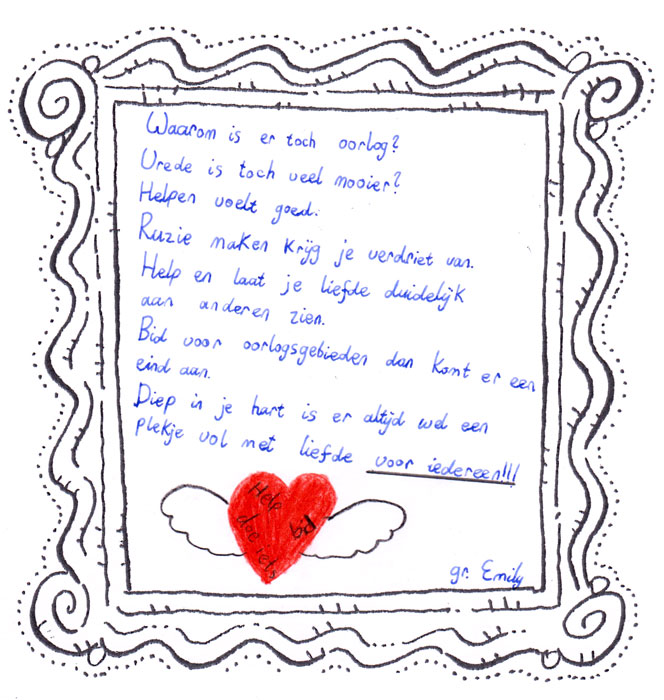 Waarom is er toch oorlog?
Vrede is toch veel mooier?
Helpen voelt goed.
Ruzie maken krijg je verdriet van.
Help en laat je liefde duidelijk
aan anderen zien.
Bid voor oorlogsgebieden dan komt er een
eind aan.
Diep in je hart is er altijd wel een
plekje vol met liefde voor iedereen!!!
Help
doe iets
bid
gr. Emily